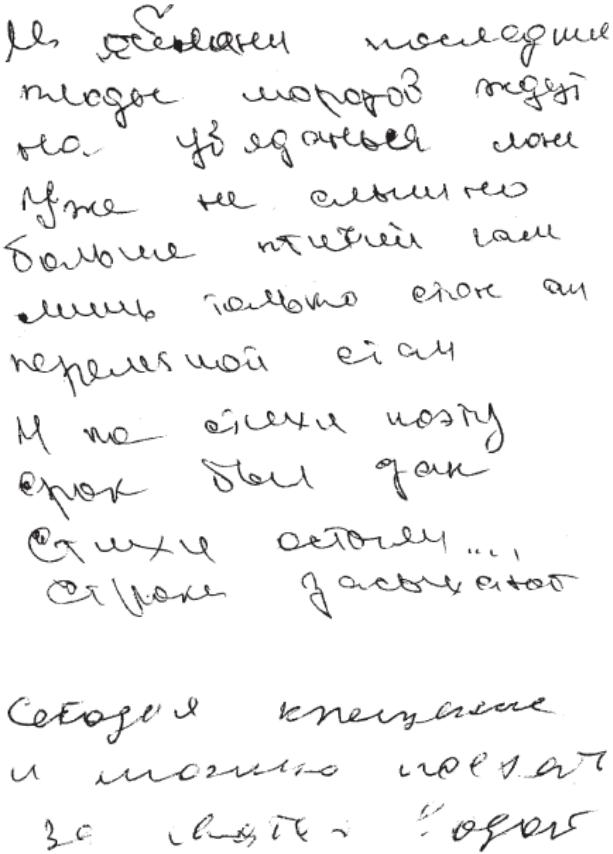 последние
плоды морозов ждут
на увяданья лоне
Уже не слышно
больше птичий гам
лишь только стон
перелетной стаи
И на стихи поэту
срок был дан
Стихи остыли....
Строки засыхают
Сегодня крещение
и можно поехать
за святой водой